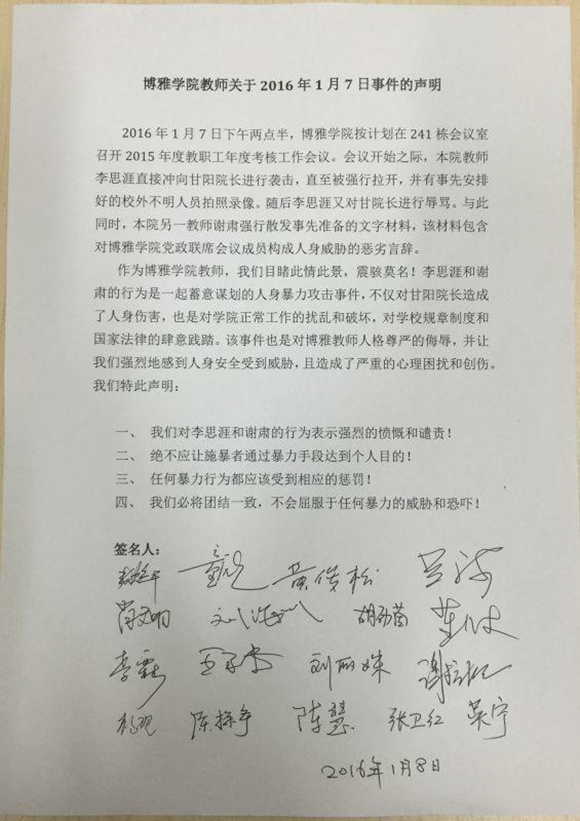 博雅学院教师关于 2016 年 1 月 7 日事件的声明
2016 年 1 月 7 日下午两点半，博雅学院按计划在 241 栋会议室
召开 2015 年度教职工年度考核工作会议。会议开始之际，本院教师
李思涯直接冲向甘阳院长进行袭击，直至被强行拉开，并有事先安排
好的校外不明人员拍照录像。随后李思涯又对甘院长进行辱骂。与此
同时，本院另一教师谢肃强行散发事先准备的文字材料，该材料包含
对博雅学院党政联席会议成员构成人身威胁的恶劣言辞。
作为博雅学院教师，我们目睹此情此景，震骇莫名！李思涯和谢
肃的行为是一起蓄意谋划的人身暴力攻击事件，不仅对甘阳院长造成
了人身伤害，也是对学院正常工作的扰乱和破坏，对学校规章制度和
国家法律的肆意践踏。该事件也是对博雅教师人格尊严的侮辱，并让
我们强烈地感到人身安全受到威胁，且造成了严重的心理困扰和创伤。
我们特此声明：
一、 我们对李思涯和谢肃的行为表示强烈的愤慨和谴责！
二、 绝不应让施暴者通过暴力手段达到个人目的！
三、 任何暴力行为都应该受到相应的惩罚！
四、 我们必将团结一致，不会屈服于任何暴力的威胁和恐吓！
签名人：
黄俊松
肖文明 董波
李霖 刘丽姝
陈慧 张卫红 吴宁
2016年1月8日